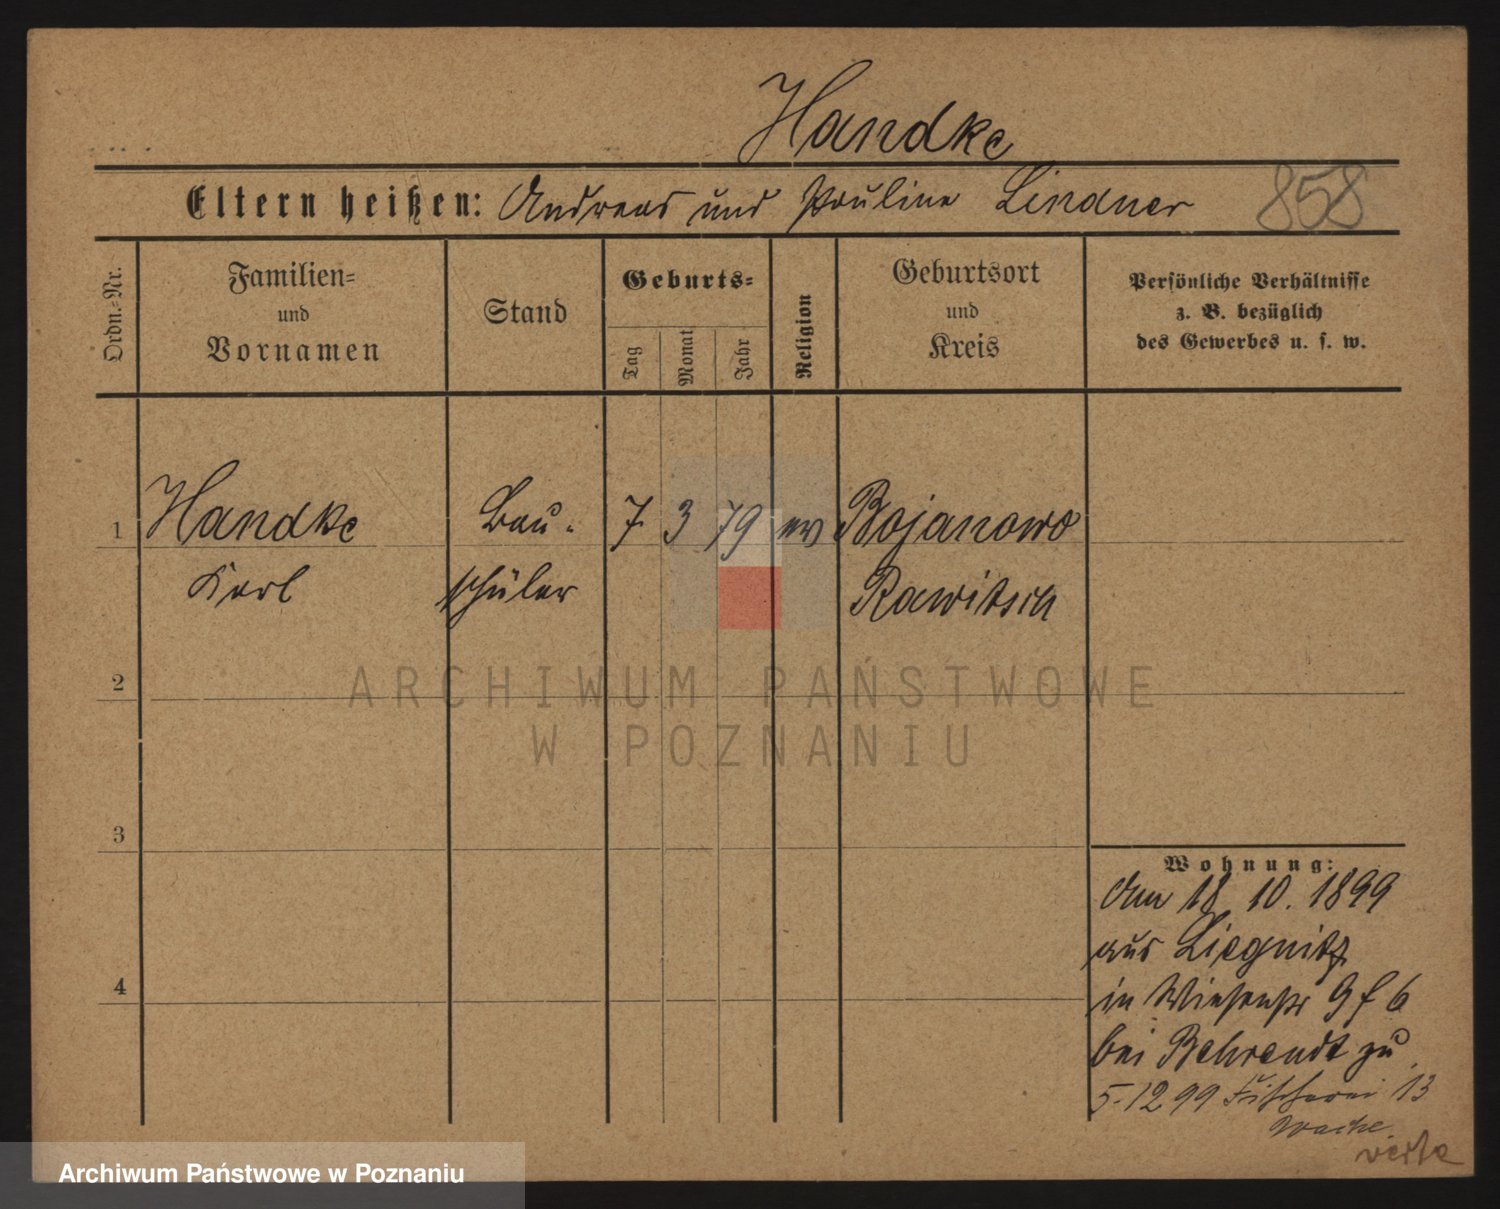 Handke
Eltern heißen: Andreas und Pauline Lindner 858
Ordn.-Nr.
Familien-
und
Vornamen
Stand
Geburts-
Tag
Monat
Jahr
Religion
Geburtsort
und
Kreis
Persönliche Verhältnisse
z. B. bezüglich
des Gewerbes u. s. w.
1 Handke Bau- 7 3 79 ev Bojanowo
Karl schüler Rawitsch
2
ARCHIWUM PAŃSTWOWE
W POZNANIU
3
4
Wohnung:
Am 18 10. 1899
aus Liegnitz
in Wiesenstr 9 f 6
bei Behrendt zu
5.12 99 Fischerei 13
verte
Archiwum Państwowe w Poznaniu